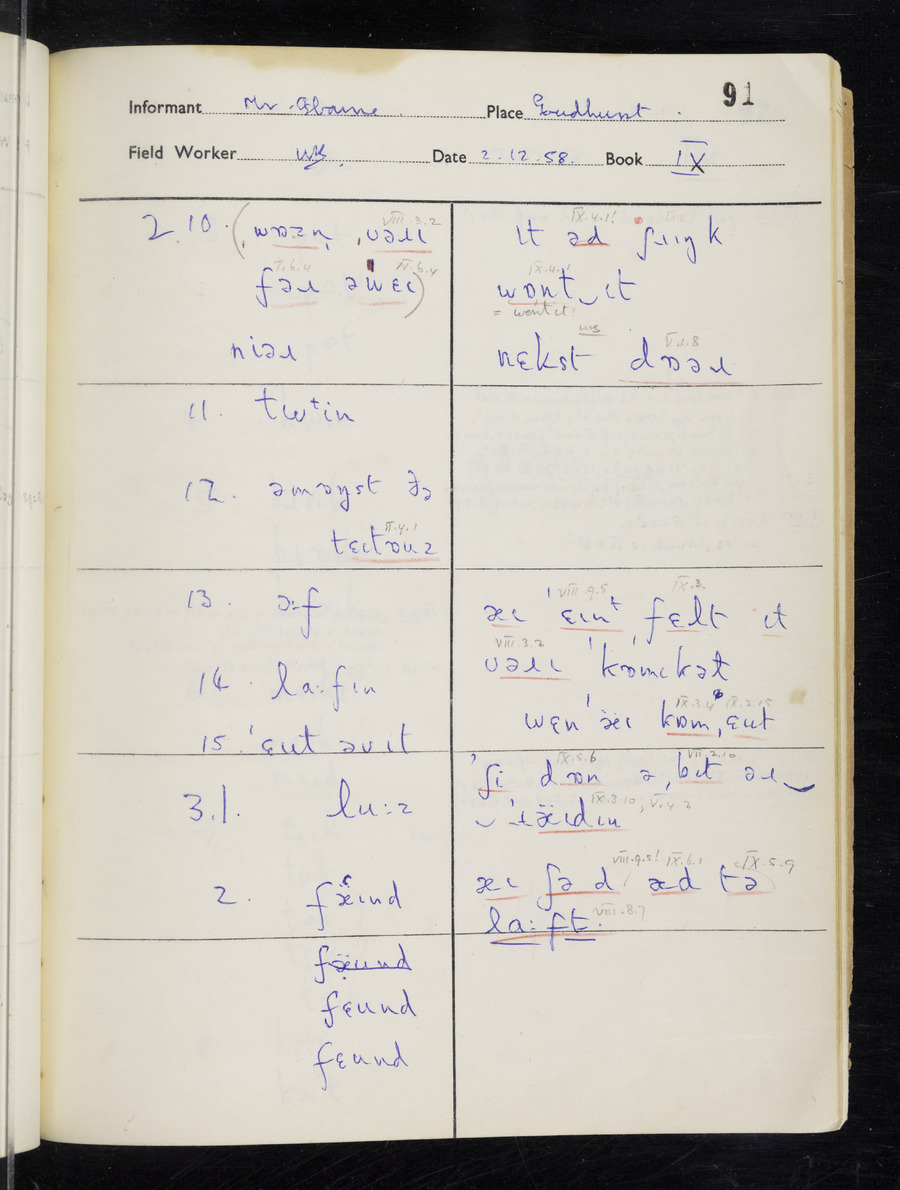 91
Informant Mr Osborne Place Goudhurst
Field Worker WB Date 2.12.58 Book IX
VIII.3.2
2.10. (ˌwɒzn̩ ˌʋəɹɪ
V.6.4
fəɹ əwɛɪ)
nɪəɹ
11. twɪn
12. əmɒŋst ðə
II.4.1
tɛɪtɒuz
13. ɔ:f
14. la:fɪn
15. ˈɛut əv ɪt
3.1. lu:z
2. fæɪnd
fæund
fɛund
fɛund
IX.4.1!
ɪt əd ʃɹɪŋk
IX.4.1
wɒnt‿ɪt
= won't it?
ms V.1.8
nɛkst dɒəɹ
VIII.9.5 IX.3.
æɪ ˈɛɪnt ˈfɛlt ɪt
VIII.3.2
ʋəɹɪ ˈkɒmɪkət
IX.3.4 IX.2.15
wɛn ˈæɪ kɒm ˌɛut
IX.5.6 VII.2.10
ˈʃi dɒn ə ˌbɪt əɹ‿
IX.3.10, V.4.2
‿ˈɹæɪdɪn
VIII.9.5! IX.6.1 IX.5.9
æɪ ʃəd æd tə
la:ft. VIII.8.7